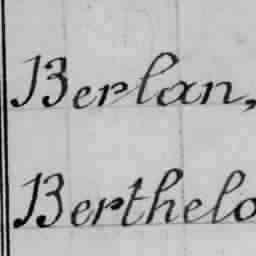 Berlan,
Berthelo